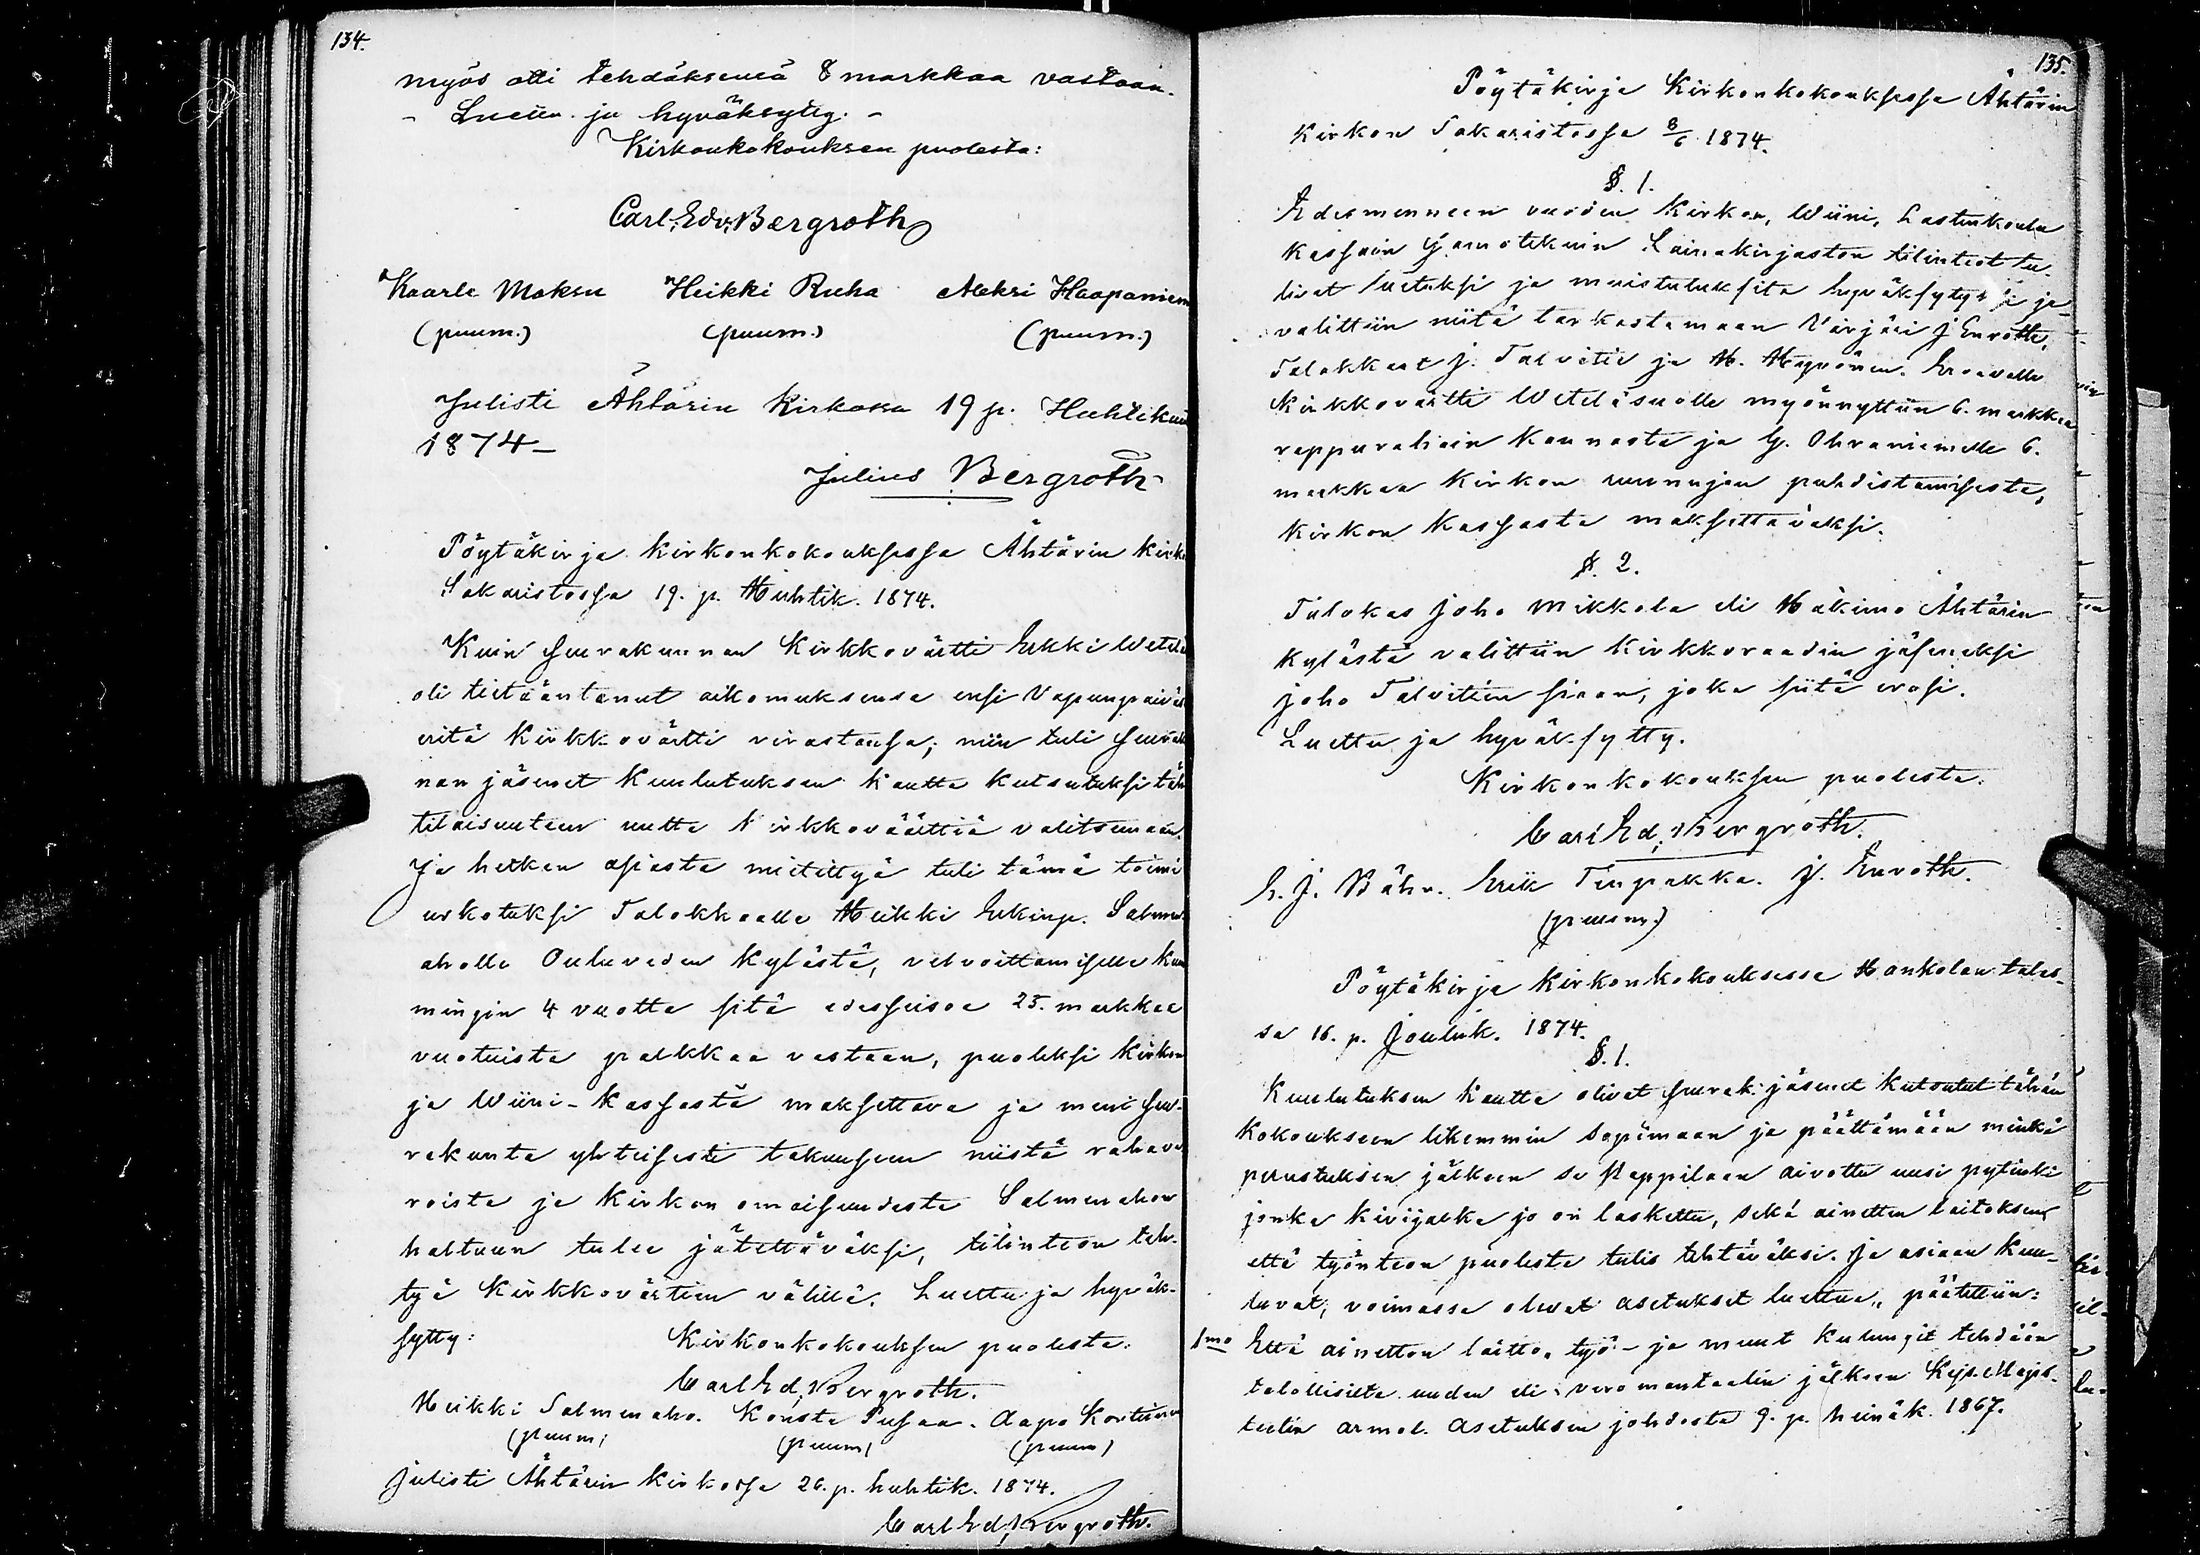 134.
myös otti tehdäksensä 8 markkaa vastaan.
- Luettu ja hyväksytty. -
Kirkonkokouksen puolesta:
Carl Edv. Bergroth
Kaarle Moksu Heikki Ruha Aleksi Haapaniem
(puum.) (puum.) (puum.)
Julisti Ähtärin Kirkossa 19 p. Huhtikuu
1874 -
Julius Bergroth
Pöytäkirja kirkonkokouksessa Ähtärin kirk
Sakaristossa 19. p. Huhtik. 1874.
Kuin seurakunnan Kirkkovärtti Erkki Wetelä
oli tietääntänut aikomuksensa ensi Vapunpäiväs
eritä Kirkkovärtti virastansa; niin tuli seurak
nan jäsenet Kuulutuksen kautta kutsutuksi täh
tilaisuuteen uutta Kirkkoväättiä valitsemaan.
Ja hetken asiasta mietittyä tuli tämä toimi
uskotuksi Talokkaalle Heikki Erkinp. Salmen
aholle Ouluveden Kylästä, velvoittamisella kun
mingin 4 vuotta sitä edesseisoa 25. markkaa
vuotuista palkkaa vastaan, puoleksi kirkon
ja Wiini-Kassasta maksettava ja meni seu-
rakunta yhteisesti takuuseen niistä rahava
roista ja Kirkon omaisuudesta Salmenahon
haltuun tulee jätettäväksi, tilinteon teh-
tyä Kirkkovärtien välillä. Luettu ja hyväk-
sytty:
Kirkonkokouksen puolesta:
Carl Ed. Bergroth.
Heikki Salmenaho. Konsta Pusaa. Aapo Kortesn
(puum) (puum) (puum)
Julisti Ähtärin Kirkossa 26. p. huhtik. 1874.
Carl Ed. Bergroth.
135.
Pöytäkirja Kirkonkokouksessa Ähtärin
Kirkon Sakaristossa 8/6 1874.
§. 1.
Edesmenneen vuoden Kirkon, Wiini, Lastenkoulu
kassain ynnä Lainakirjaston tilinteot tu-
livat luetuksi ja muistutuksita hyväksytyksi ja
valittiin niitä tarkastamaan Värjäri J Enroth,
Talokkaat J. Talvitie ja H. Hyvönen. Eroavalle
Kirkkovärtti Wetelösuolle myönnyttiin 6. markkaa
vappurahain kannosta ja J. Ohraniemelle 6.
markkaa Kirkon puhdistamisesta,
Kirkon Kassasta maksettavaksi.
§. 2.
Talokas Joho Mikkola eli Häkimo Ähtärin
Kylästä valittiin Kirkkoraadin jäseneksi
Joho Talvitien siaan, joka siitä erosi.
Luettu ja hyväksytty.
Kirkonkokouksen puolesta:
Carl Ed. Bergroth.
E. J. Bähr. Erik Teupakka. J. Enroth.
(puum.)
Pöytäkirja Kirkonkokouksessa Honkolan talos-
sa 16. p. Jouluk. 1874.
§. 1.
Kuulutuksen Kautta olivat seurak: jäsenet kutsutut tähän
Kokoukseen likemmin sopimaan ja päättämään minkä
perustuksen jälkeen se Pappilaan aivottu uusi pytinki
jonka kivijalka jo on laskettu, sekä ainetten laitoksen
että työnteon puolesta tulis tehtäväksi. Ja asiaan kuu-
luvat, voimassa olevat asetukset luettua, päätettiin:
1mo Että ainetten laitto, työ- ja muut kulungit tehdään
talollisilta uuden eli veromantaalin jälkeen Keis. Majes-
teetin armol. Asetuksen johdosta 9. p. heinäk. 1867.